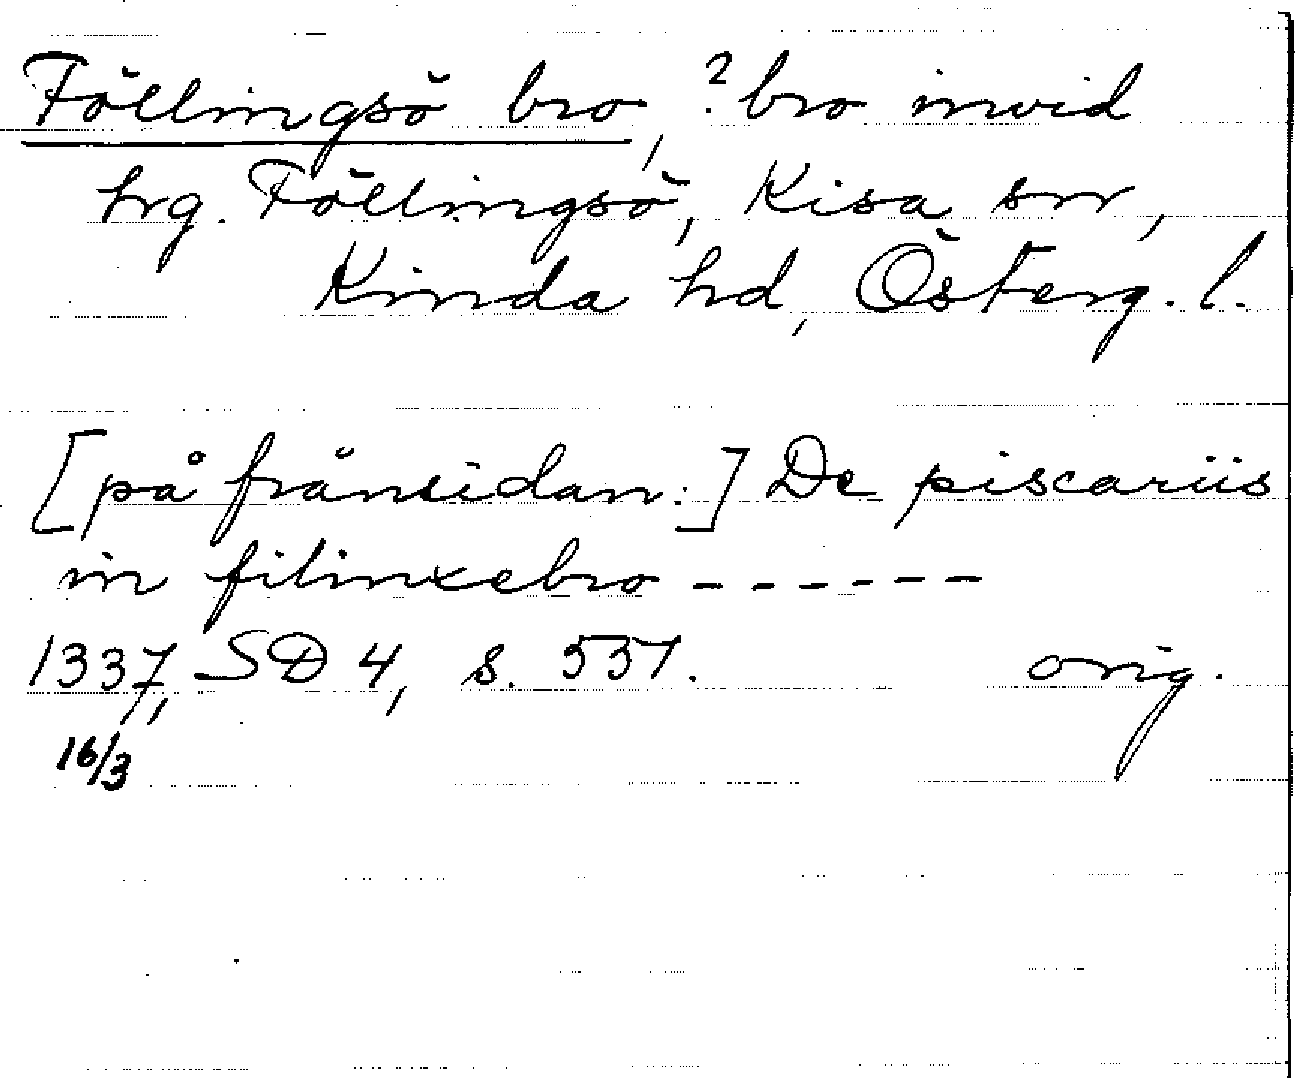 Föllingsö bro, ? bro invid
hrg. Föllingsö, Kisa sn,
Kinda hd, Österg. l.
[på frånsidan:] De piscariis
in filinxebro - - - - - -
1337, SD 4, s. 537. orig.
16/3